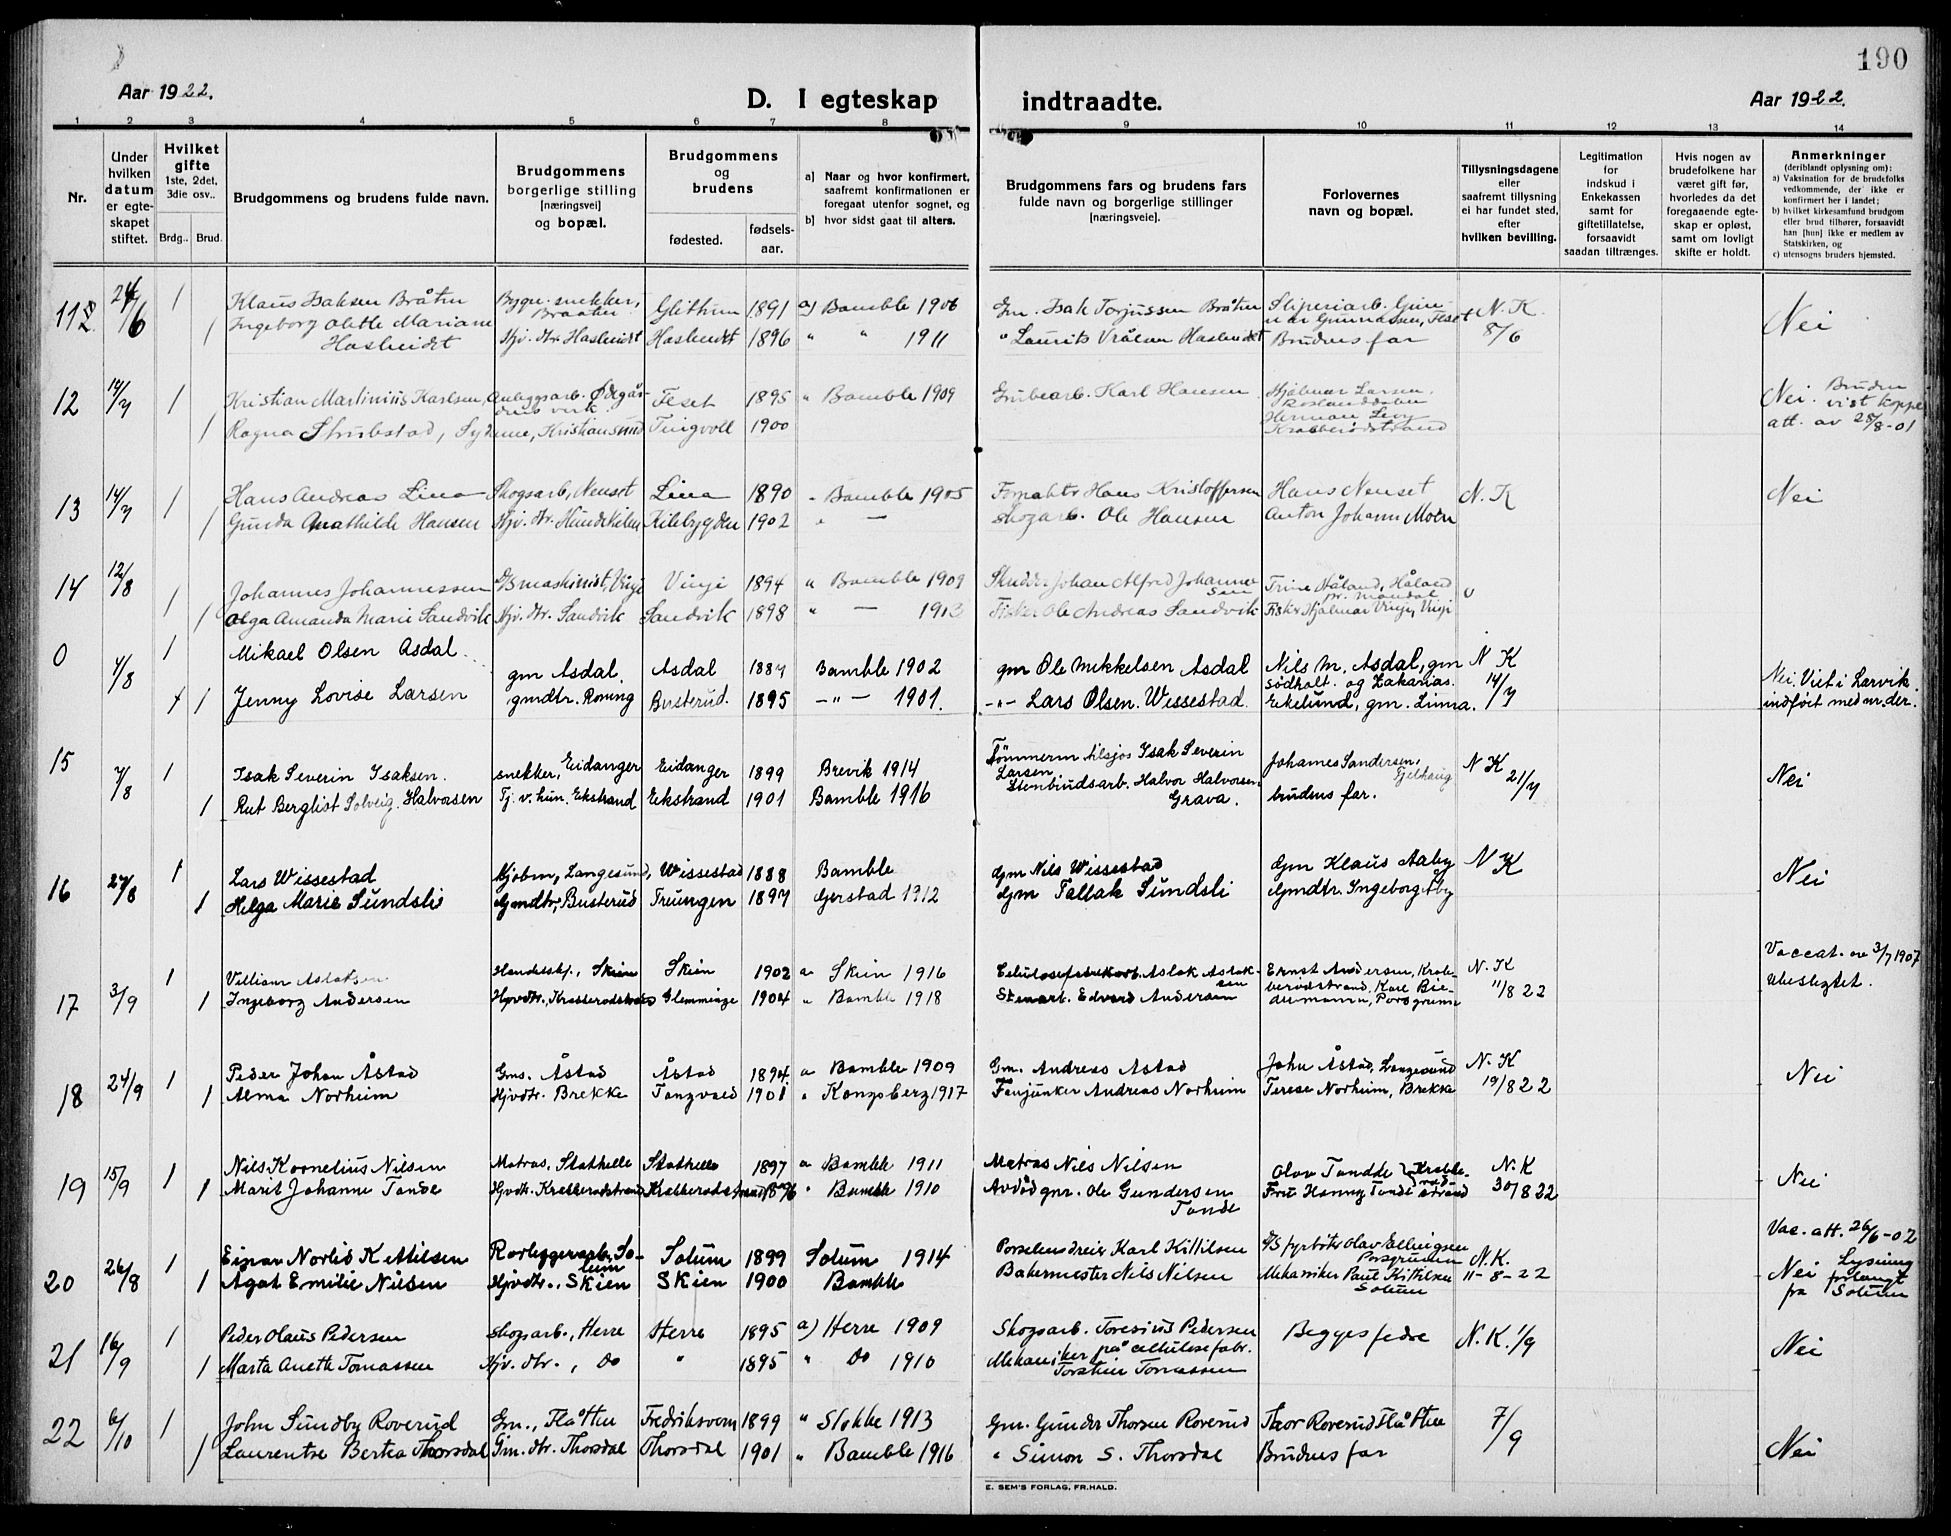 190
Aar 1922.
D. I egteskap indtraadte.
Aar 1922.
1 2 3 4 5 6 7 8 9 10 11 12 13 14
Nr.
Under hvilken datum er egteskapet stiftet.
Hvilket gifte 1ste, 2det, 3die osv..
Brdg.. Brud.
Brudgommens og brudens fulde navn.
Brudgommens borgerlige stilling [næringsvei] og bopæl.
Brudgommens og brudens
fødested.
fødselsaar.
a) Naar og hvor konfirmert, saafremt konfirmationen er foregaat utenfor sognet, og
b) hvor sidst gaat til alters.
Brudgommens fars og brudens fars fulde navn og borgerlige stillinger [næringsveie].
Forlovernes navn og bopæl.
Tillysningsdagene eller saafremt tillysning ei har fundet sted, efter hvilken bevilling.
Legitimation for indskud i Enkekassen samt for giftetillatelse, forsaavidt saadan tiltrænges.
Hvis nogen av brudefolkene har været gift før, hvorledes da det foregaaende egteskap er opløst, samt om lovlig skifte er holdt.
Anmerkninger (deriblandt oplysning om):
a) Vaksination for de brudefolks vedkommende, der ikke er konfirmert her i landet;
b) hvilket kirkesamfund brudgom eller brud tilhører, forsaavidt han [hun] ikke er medlem av Statskirken, og
c) utensogns bruders hjemsted.
24/6 1 Klaus Isaksen Bråten Bygn. snekker, Braaten 1891 a) Bamble 1906 Gm. Isak Torjussen Bråten N. K. Nei
1 Ingeborg Olette Mariane Hasleidet Hjv. dtr. Hasleidet Hasleidet 1896 " " 1911 " Laurits Vrålsen Hasleidet Brudens far 8/6
12 14/7 1 Kristian Martinius Karlsen, anleggsarb. Ødegårdens verk Feset 1895 " Bamble 1909 Grubearb. Karl Hansen Hjalmar Larsen, Nei. Bruden vist koppe
1 Ragna Strubstad, Sydame, Kristiansund Tingvoll 1900 Herman Levy Krabberødstrand att. av 28/8-01
13 14/7 1 Hans Andreas Lina Skogsarb, Neuset Lina 1890 " Bamble 1905 Hans Kristoffersen Hans Neuset N. K Nei
1 Gunda Mathilde Hansen Hjv. dtr. Kilebygden 1902 " — skogarb. Ole Hansen Anton Johann Moen
14 12/8 1 Johannes Johannessen D/S maskinist, Vinje Vinje 1894 " Bamble 1909 Johan Alfred Johannessen Trine Håland, Håland pr. Mandal
1 Olga Amanda Marie Sandvik Hjv. dtr. Sandvik Sandvik 1898 " — 1913 Fisker Ole Andreas Sandvik Fisker Hjalmar Vinje, Vinje
0 7/8 1 Mikael Olsen Asdal. gm Asdal, Asdal 1887 Bamble 1902 gm Ole Mikkelsen Asdal Nils M. Asdal, gm N K Nei. Viet i Larvik.
1 Jenny Lovise Larsen gmdtr. Roning Busterud. 1895 —"— 1901. —"— Lars Olsen. Wissestad. Södholt. og Zakarias. Ekelund, gm. Linna. 14/7 indført med nr. der.
15 7/8 1 Isak Severin Isaksen. snekker, Eidanger Eidanger 1899 Brevik 1914 Tømmerm Isak Severin Larsen Johannes Sandersen, N K 21/7 Nei
1 Rut Berglist Solveig. Halvorsen Tj. v. hun. Ekstrand Eekstrand 1901 Bamble 1916 Stenbrudsarb. Halvor Halvorsen Grava. brudens far.
16 27/8 1 Lars Wissestad Kjøbm, Langesund, Wissestad 1888 Bamble Gm Nils Wissestad Gm Klaus Aaby N K Nei
1 Helga Marie Sundsli Gmdtr, Busterud Treungen 1897 Gerstad 1912 Gm Tallak Sundsli Gmdtr. Ingeborg Åby
17 3/9 1 Villiam Aslaksen Skien Skien 1902 a Skien 1916 Aslak Aslaksen Ernst Andersen, Krabberødstrand, N. K Vaccat. av 3/7 1907
1 Ingeborg Andersen Hjvdtr., Krabberødstrand Glemminge 1904 " Bamble 1918 Stenarb. Edvard Andersen Karl Biedermann, Porsgrunn 11/8 22 Ubeslegtet.
18 24/9 1 Peder Johan Åstad Gms. Åstad Åstad 1894 a Bamble 1909 Gm. Andreas Åstad John Åstad, Langesund N. K Nei
1 Alma Norheim Hjvdtr. Brekke 1901 " Kongsberg 1917 Fanjunker Andreas Norheim Terese Norheim, Brekka 19/8 22
19 15/9 1 Nils Kornelius Nilsen Matros, Stathelle Stathelle 1897 a Bamble 1911 Matros Nils Nilsen Olav Tandde N. K Nei
1 Marit Johanne Tande Hjvdtr. Krabberødstrand Krabberødstrand 1896 " Bamble 1910 Avdød gmr. Ole Gundersen Tande Tande Krabberødstrand 30/8 22
20 26/8 1 Einar Norlid Kittilsen Rørleggerarb. Solum Solum 1899 Solum 1914 Porselensdreier Karl Kittilsen D/S fyrbøter Olav Ellingsen Porsgrunn N. K. Vac. att. 26/6-02
1 Agat Emilie Nilsen Hjvdtr., Skien Skien 1900 Bamble Bakermester Nils Nilsen Mekaniker Paul Kittilsen Solum 11-8-22 Nei Lysning forlangt fra Solum
21 16/9 1 Peder Olaus Pedersen Skogsarb., Herre Herre 1895 a) Herre 1909 Skogsarb. Toresius Pedersen Begges fedre N. K. 1/9 Nei
1 Marta Anette Tomassen Hjv. dtr., do " 1895 " do 1910 Mekaniker på cellulosefabr. Torstein Tomassen
22 6/10 1 John Sundby Roverud Gm., Flåtten Fredriksvern 1899 " Stokke 1913 Gm. Gunder Thorsen Roverud Thor Roverud Flåtten 7/9 Nei
1 Laurentse Bertea Thorsdal Gm. dtr. Thorsdal Thorsdal 1901 " Bamble 1916 " Simon S. Thorsdal Brudens far
E. SEM'S FORLAG, FR.HALD.